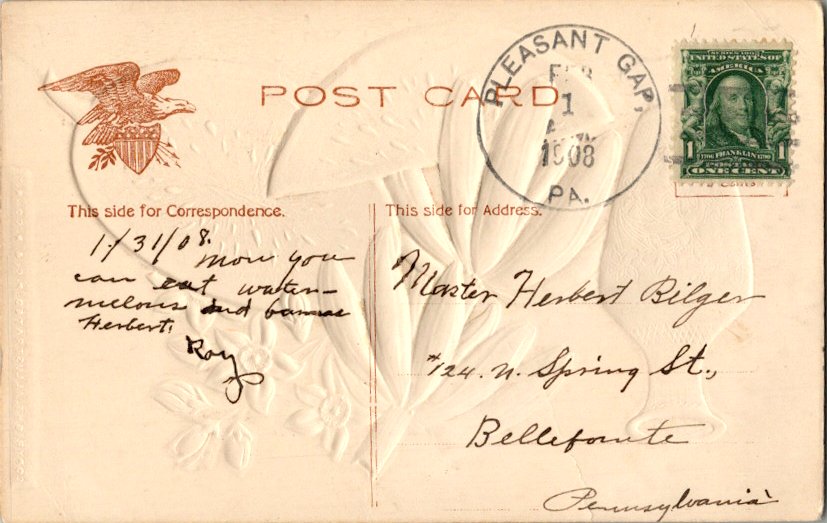 POST CARD
PLEASANT GAP,
FEB
1
1908
PA.
SERIES 1902
UNITED STATES OF
AMERICA
1706 FRANKLIN 1790
1 POSTAGE 1
ONE CENT
This side for Correspondence.
1/31/08.
now you
can eat water-
melons and
Herbert.
Roy
This side for Address.
Master Herbert Bilger
#124. N. Spring St.,
Bellefonte
Pennsylvania